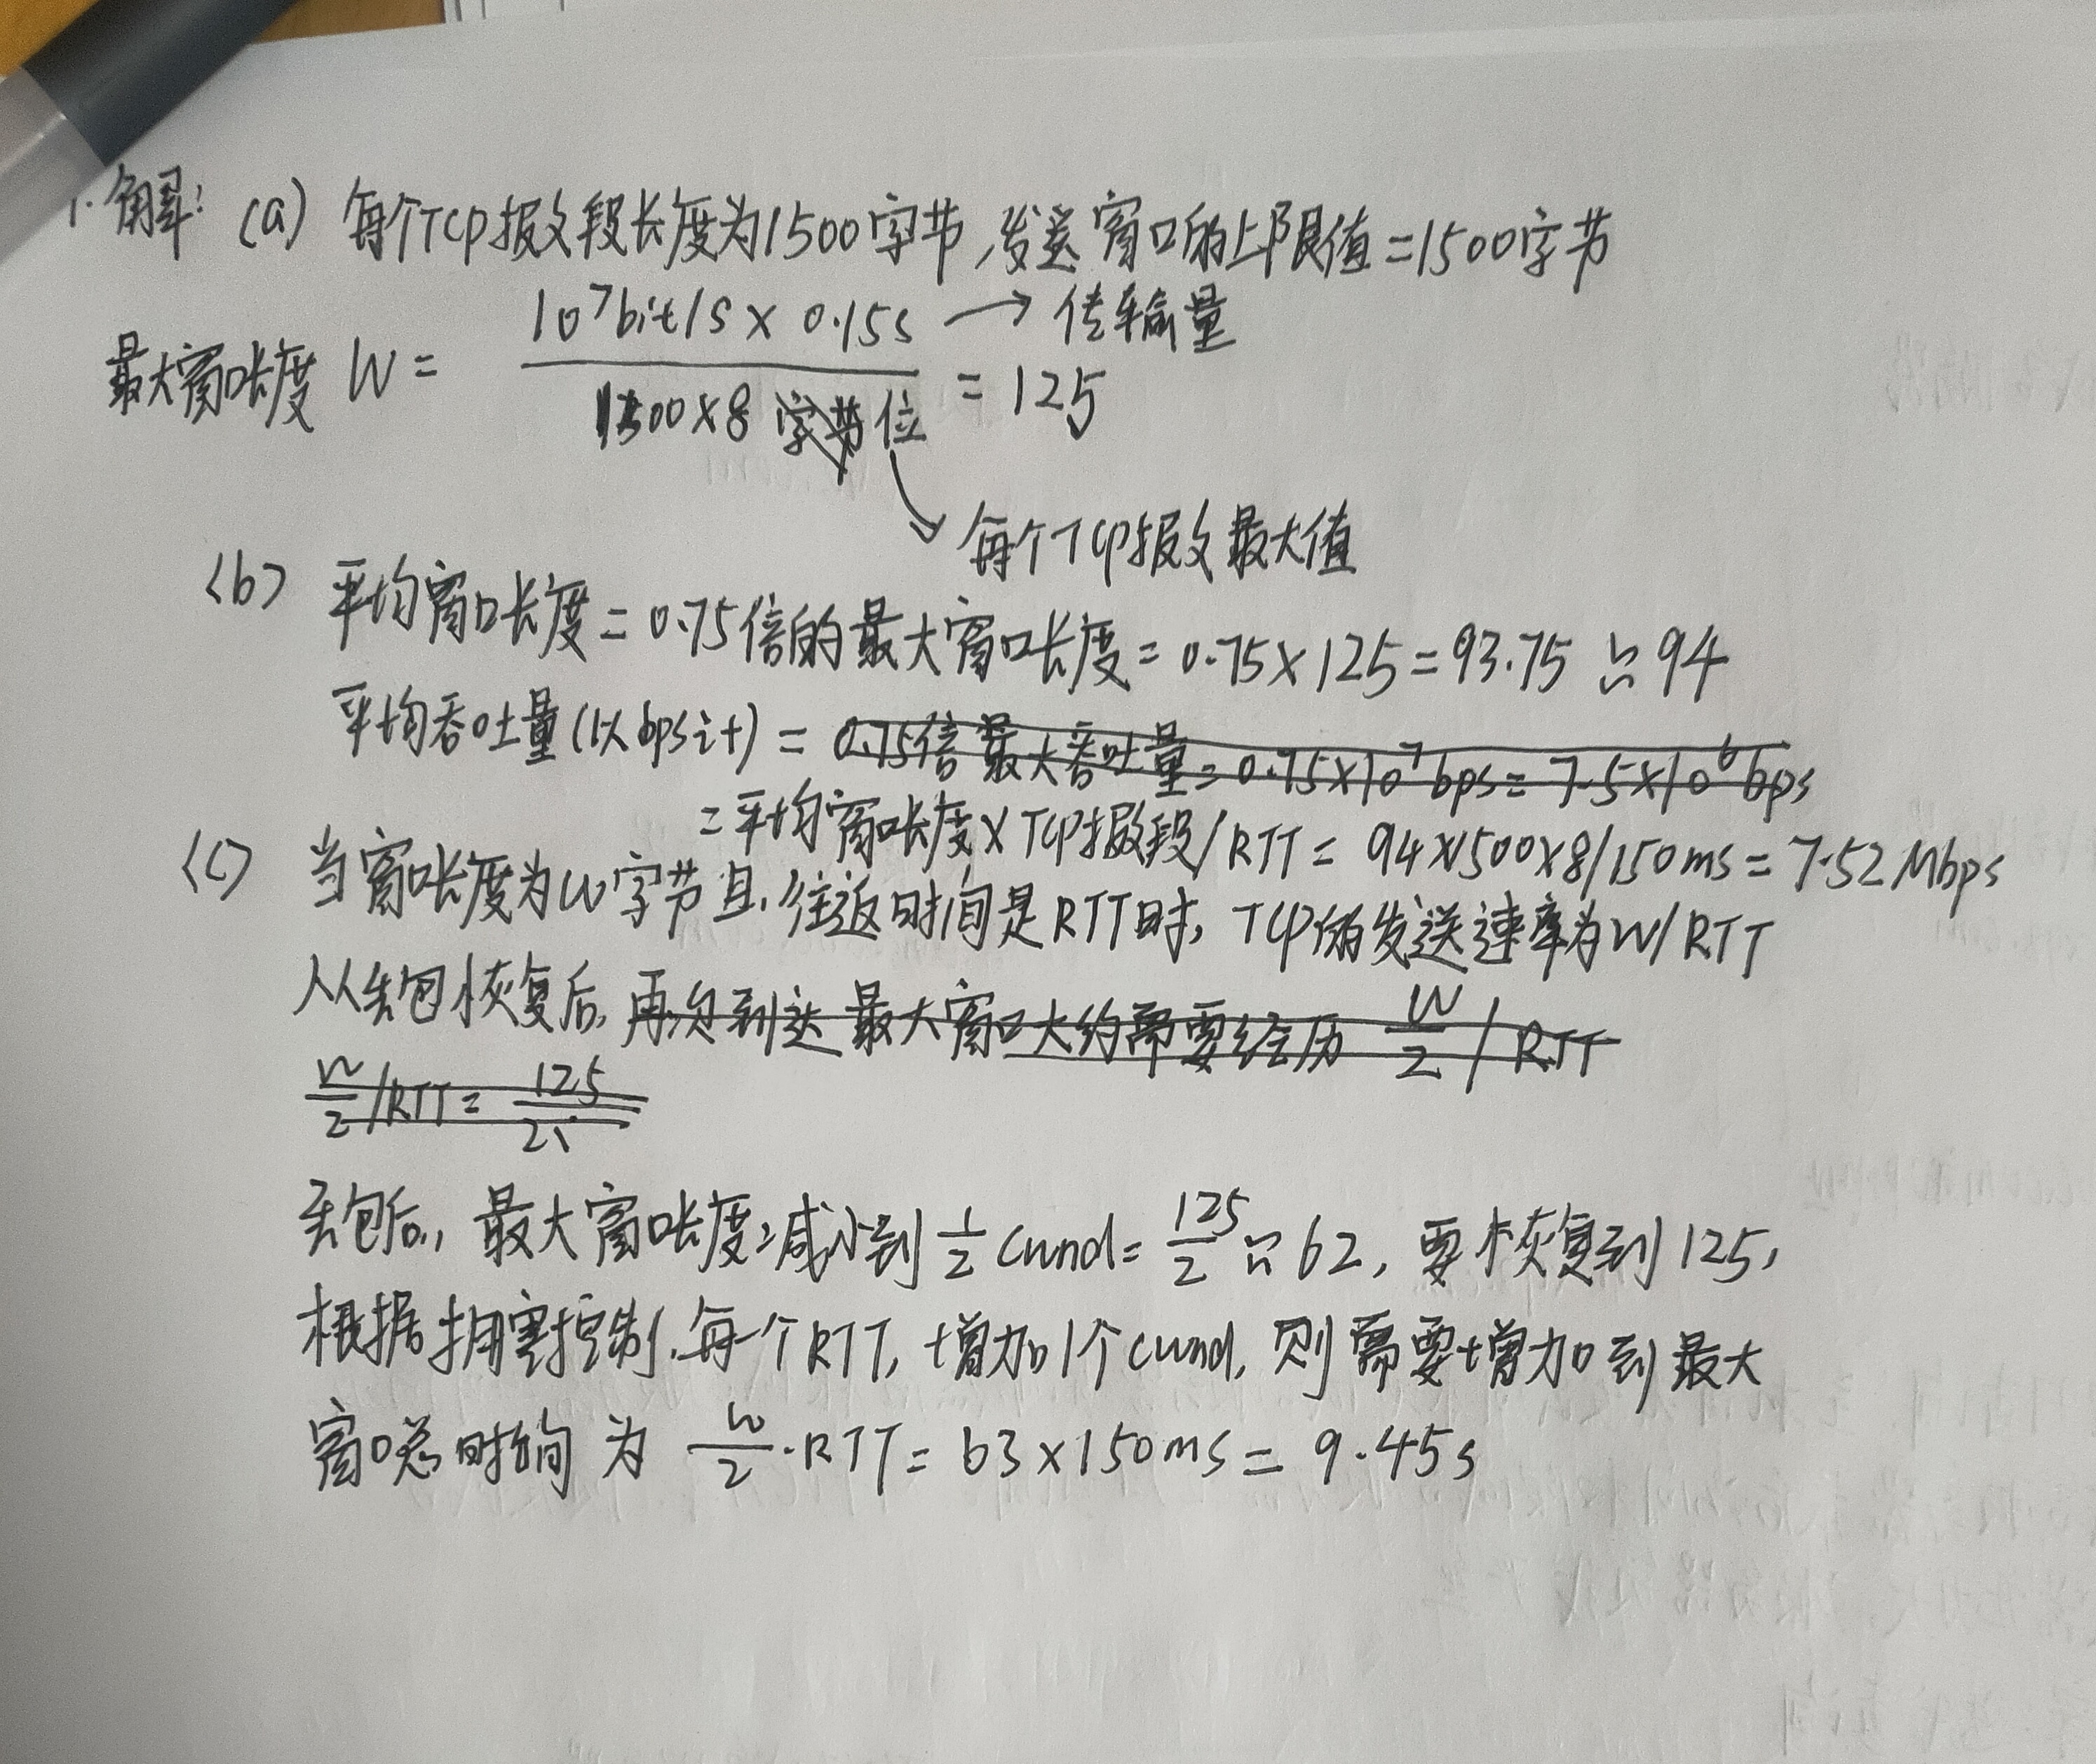 1.解: (a) 每个TCP报文段长度为1500字节,发送窗口的上限值=1500字节
10^7bit/s × 0.15s → 传输量
最大窗口长度 W = ―――― = 125
1500×8 字节位
每个TCP报文最大值
(b) 平均窗口长度=0.75倍的最大窗口长度=0.75×125=93.75≈94
平均吞吐量(以bps计) = 0.75倍最大吞吐量=0.75×10^7bps=7.5×10^6bps
=平均窗口长度×TCP报文段/RTT=94×1500×8/150ms=7.52Mbps
(c) 当窗口长度为w字节且,往返时间是RTT时,TCP的发送速率为W/RTT
从丢包恢复后,再次到达最大窗口大约需要经历 W/2 / RTT
W/2 /RTT= 125/2
丢包后,最大窗口长度减小到1/2 cwnd=125/2≈62,要恢复到125,
根据拥塞控制,每一个RTT,增加1个cwnd,则需要增加到最大
窗口总时间为 W/2·RTT=63×150ms=9.45s